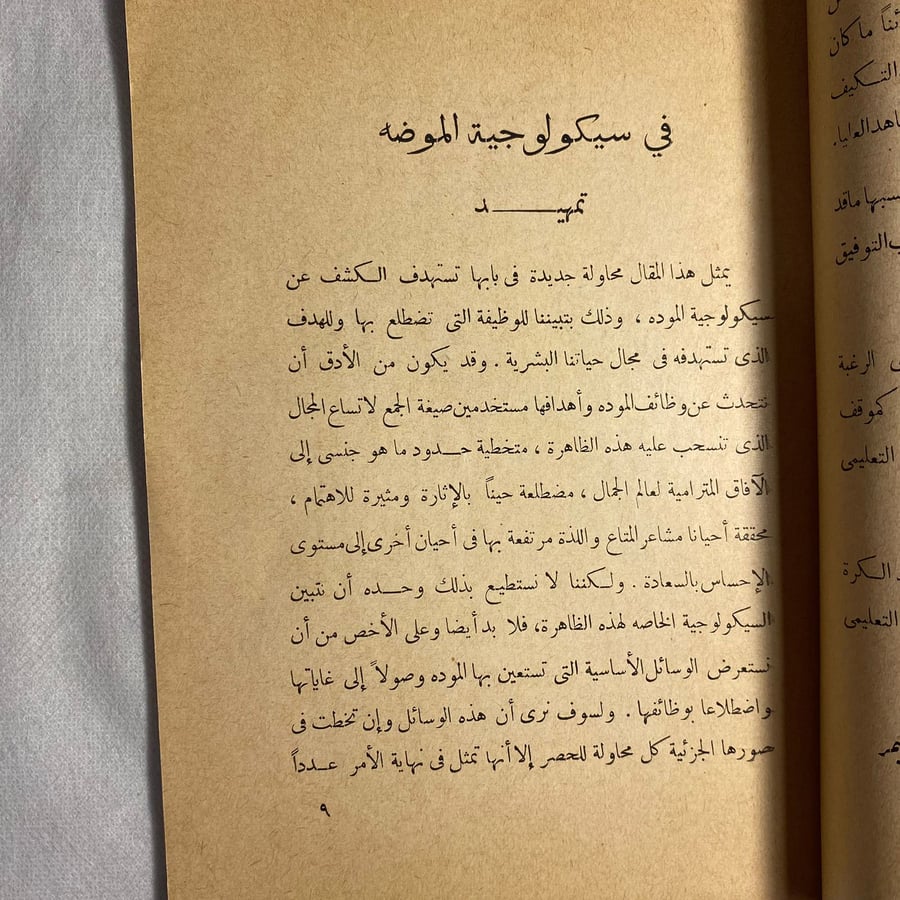 في سيكولوجية الموضه
تمهيـــــــد
يمثل هذا المقال محاولة جديدة فى بابها تستهدف الكشف عن
سيكولوجية الموده ، وذلك بتبيننا للوظيفة التى تضطلع بها وللهدف
الذى تستهدفه فى مجال حياتنا البشرية . وقد يكون من الأدق أن
نتحدث عن وظائف الموده وأهدافها مستخدمين صيغة الجمع لاتساع المجال
الذى تنسحب عليه هذه الظاهرة ، متخطية حدود ما هو جنسى إلى
الآفاق المترامية لعالم الجمال ، مضطلعة حيناً بالإثارة ومثيرة للاهتمام ،
محققة أحيانا مشاعر المتاع واللذة مرتفعة بها فى أحيان أخرى إلى مستوى
الإحساس بالسعادة . ولكننا لا نستطيع بذلك وحده أن نتبين
السيكولوجية الخاصه لهذه الظاهرة، فلا بد أيضا وعلى الأخص من أن
نستعرض الوسائل الأساسية التى تستعين بها الموده وصولاً إلى غاياتها
واضطلاعا بوظائفها . ولسوف نرى أن هذه الوسائل وإن تخطت فى
صورها الجزئية كل محاولة للحصر إلا أنها تمثل فى نهاية الأمر عدداً
٩
ما كان
التكيف
العليا.
ما قد
التوفيق
الرغبة
كموقف
التعليمى
الكرة
التعليمى